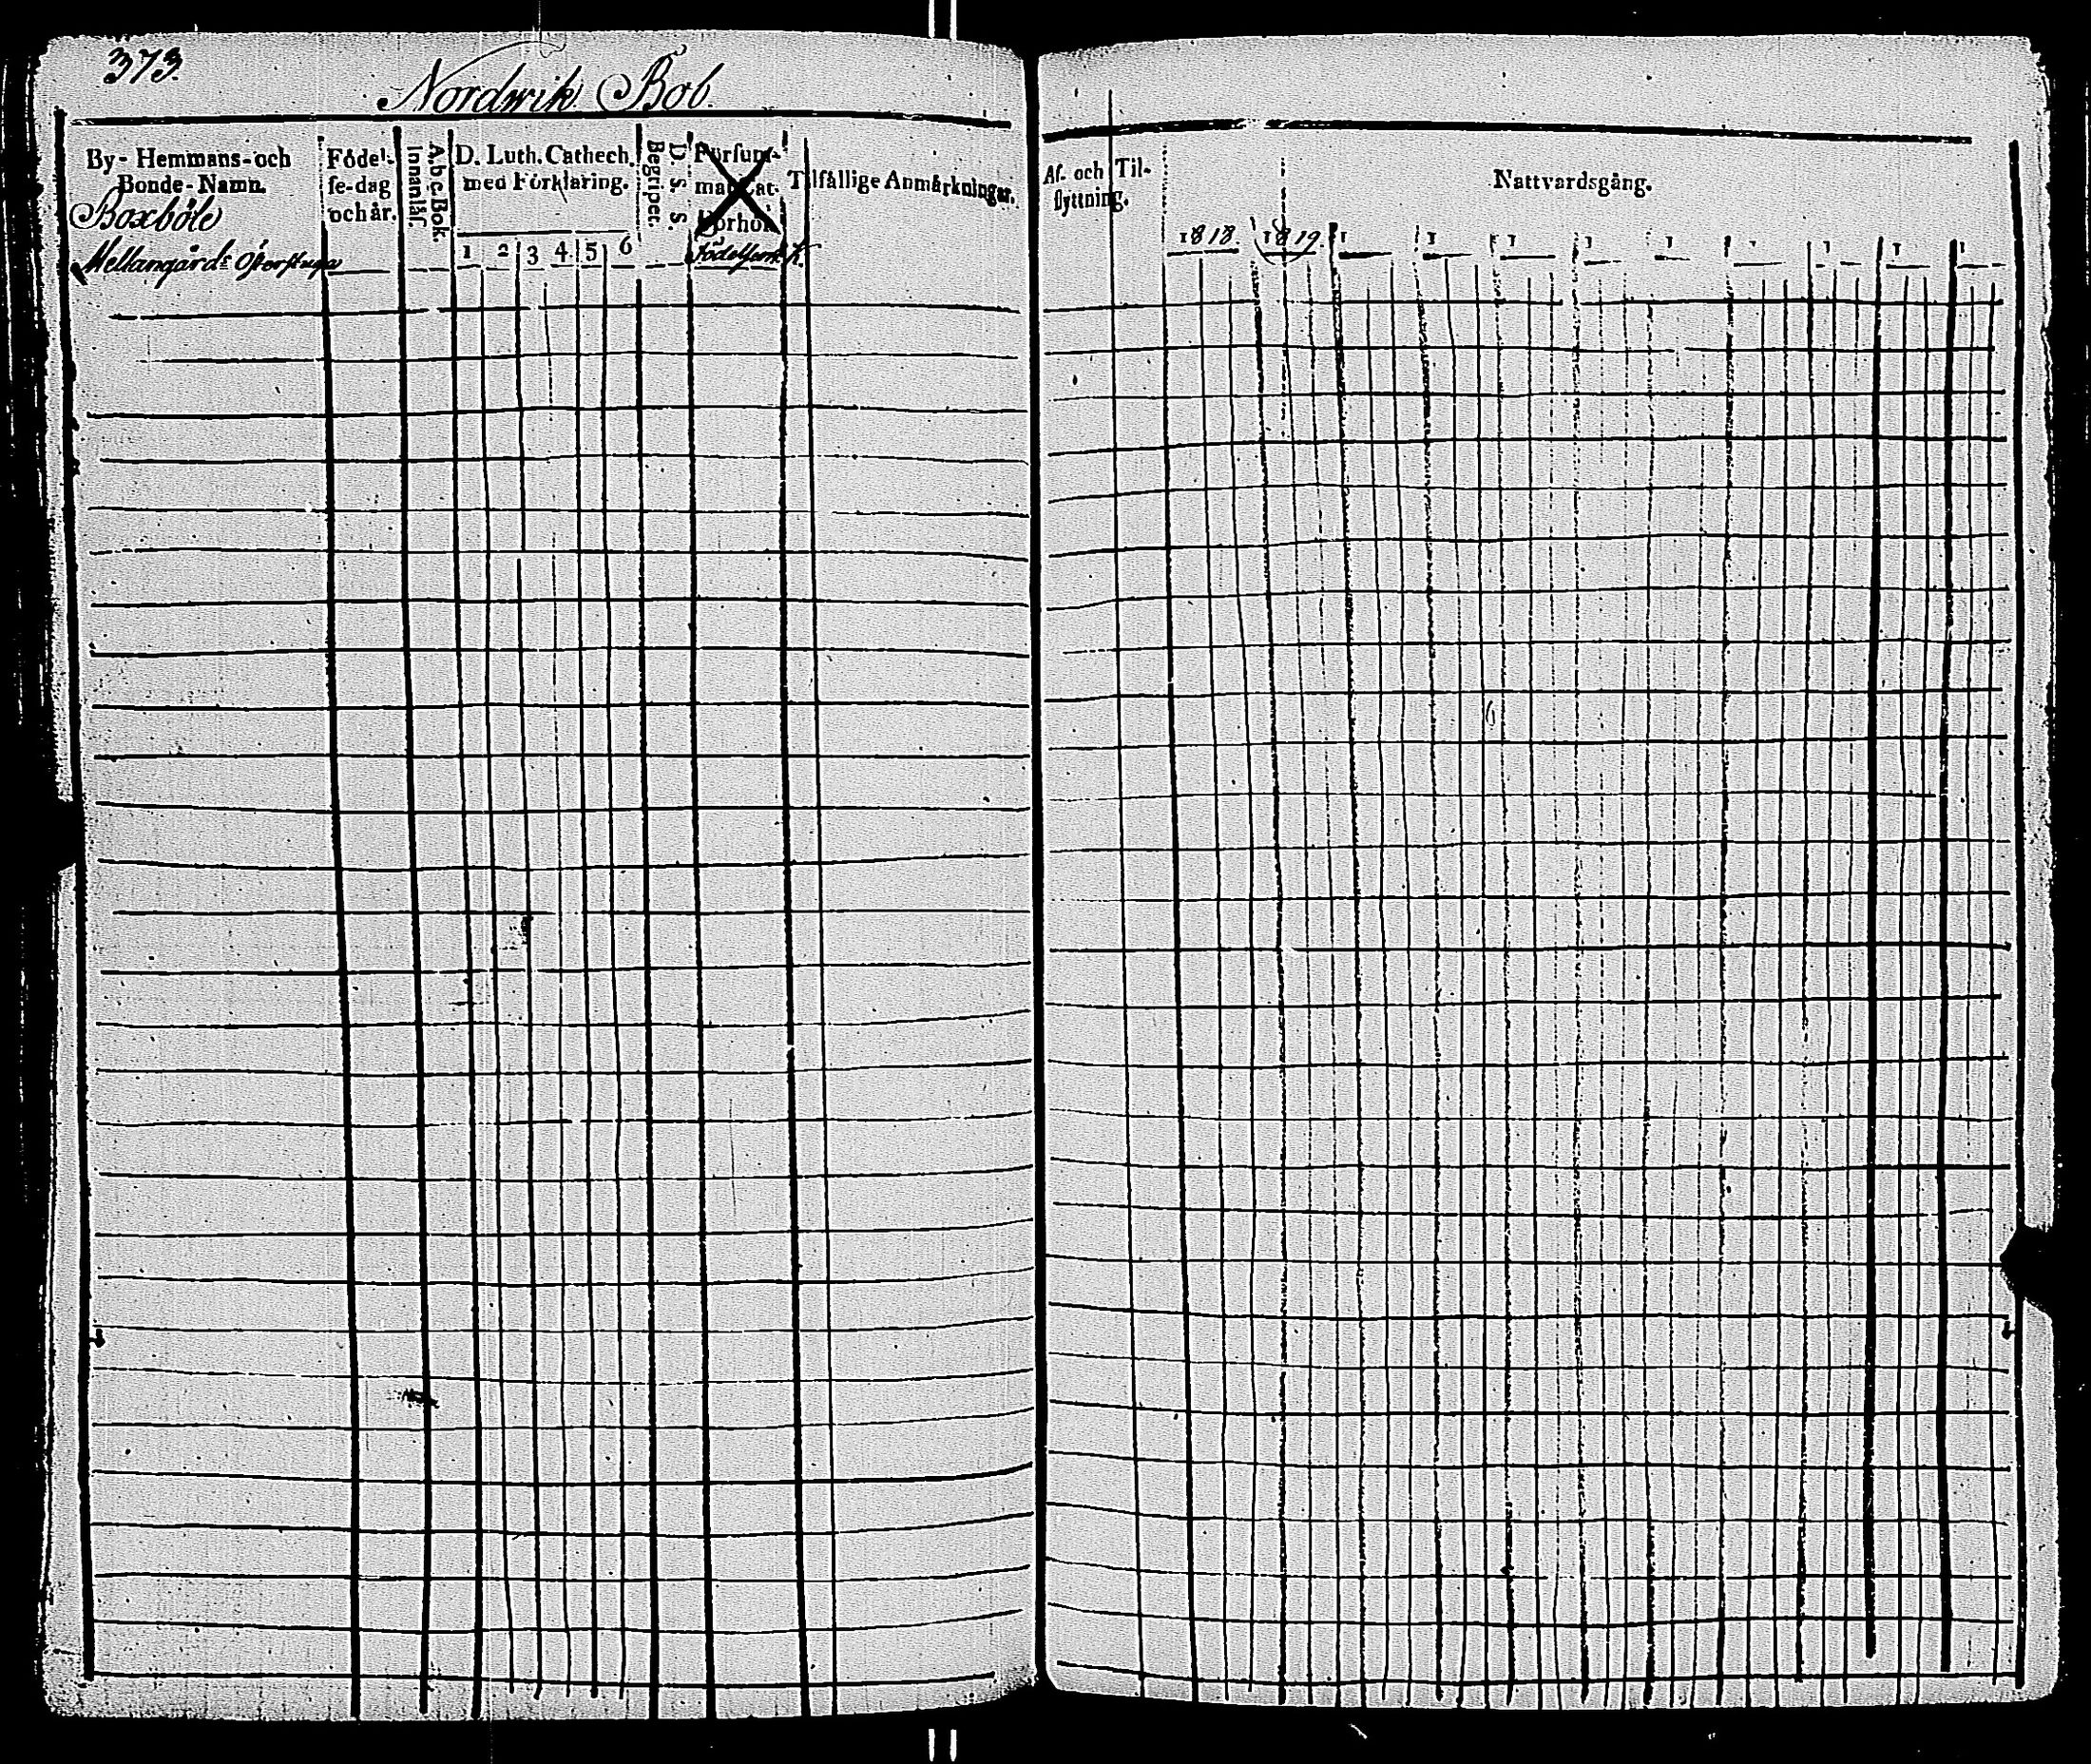 373.
Nordwik Bol.
By-Hemmans-och
Bonde-Namn.
Boxböle
Mellangårds Österstuga
Födel-
se-dag
och år.
A.b.c. Bok.
Innanläs.
D. Luth. Cathech.
med Förklaring.
1 2 3 4 5 6
D. S. S.
Begripet.
Försum-
mat Cat.
Förhör
Födelseort.
Tilfällige Anmärkningar.
Af- och Til-
flyttning.
Nattvardsgång.
1818. 1819. 1 1 1 1 1 1 1 1 1